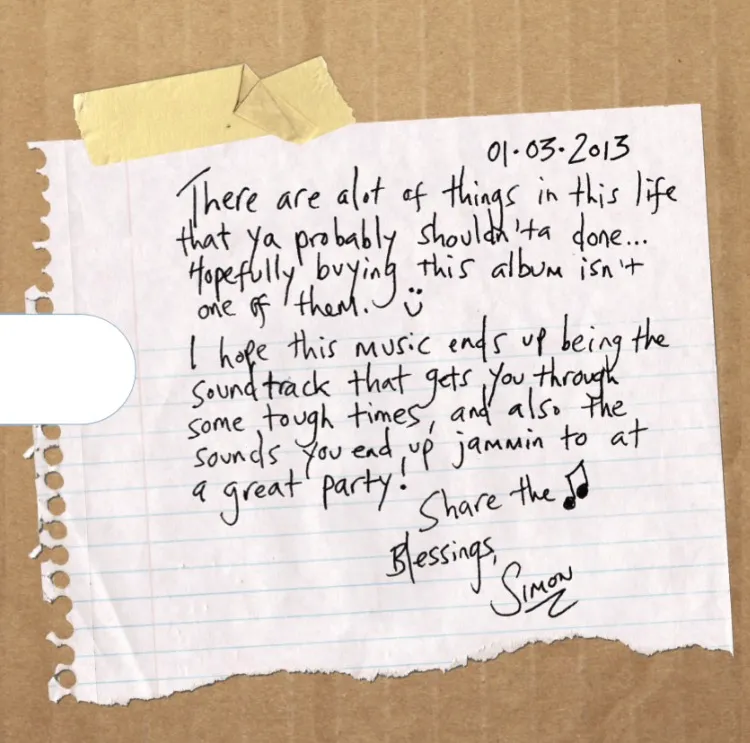 01·03·2013
There are alot of things in this life
that ya probably shouldn'ta done...
Hopefully buying this album isn't
one of them.
I hope this music ends up being the
soundtrack that gets you through
some tough times, and also the
sounds you end up jammin to at
a great party!
Share the
Blessings,
Simon